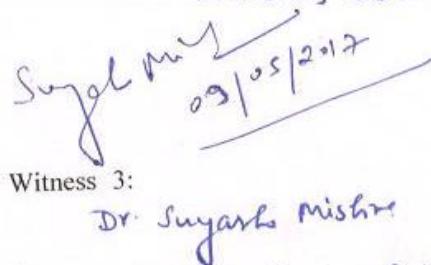 Suyash Mis
09/05/2017
Witness 3:
Dr. Suyash Mishra